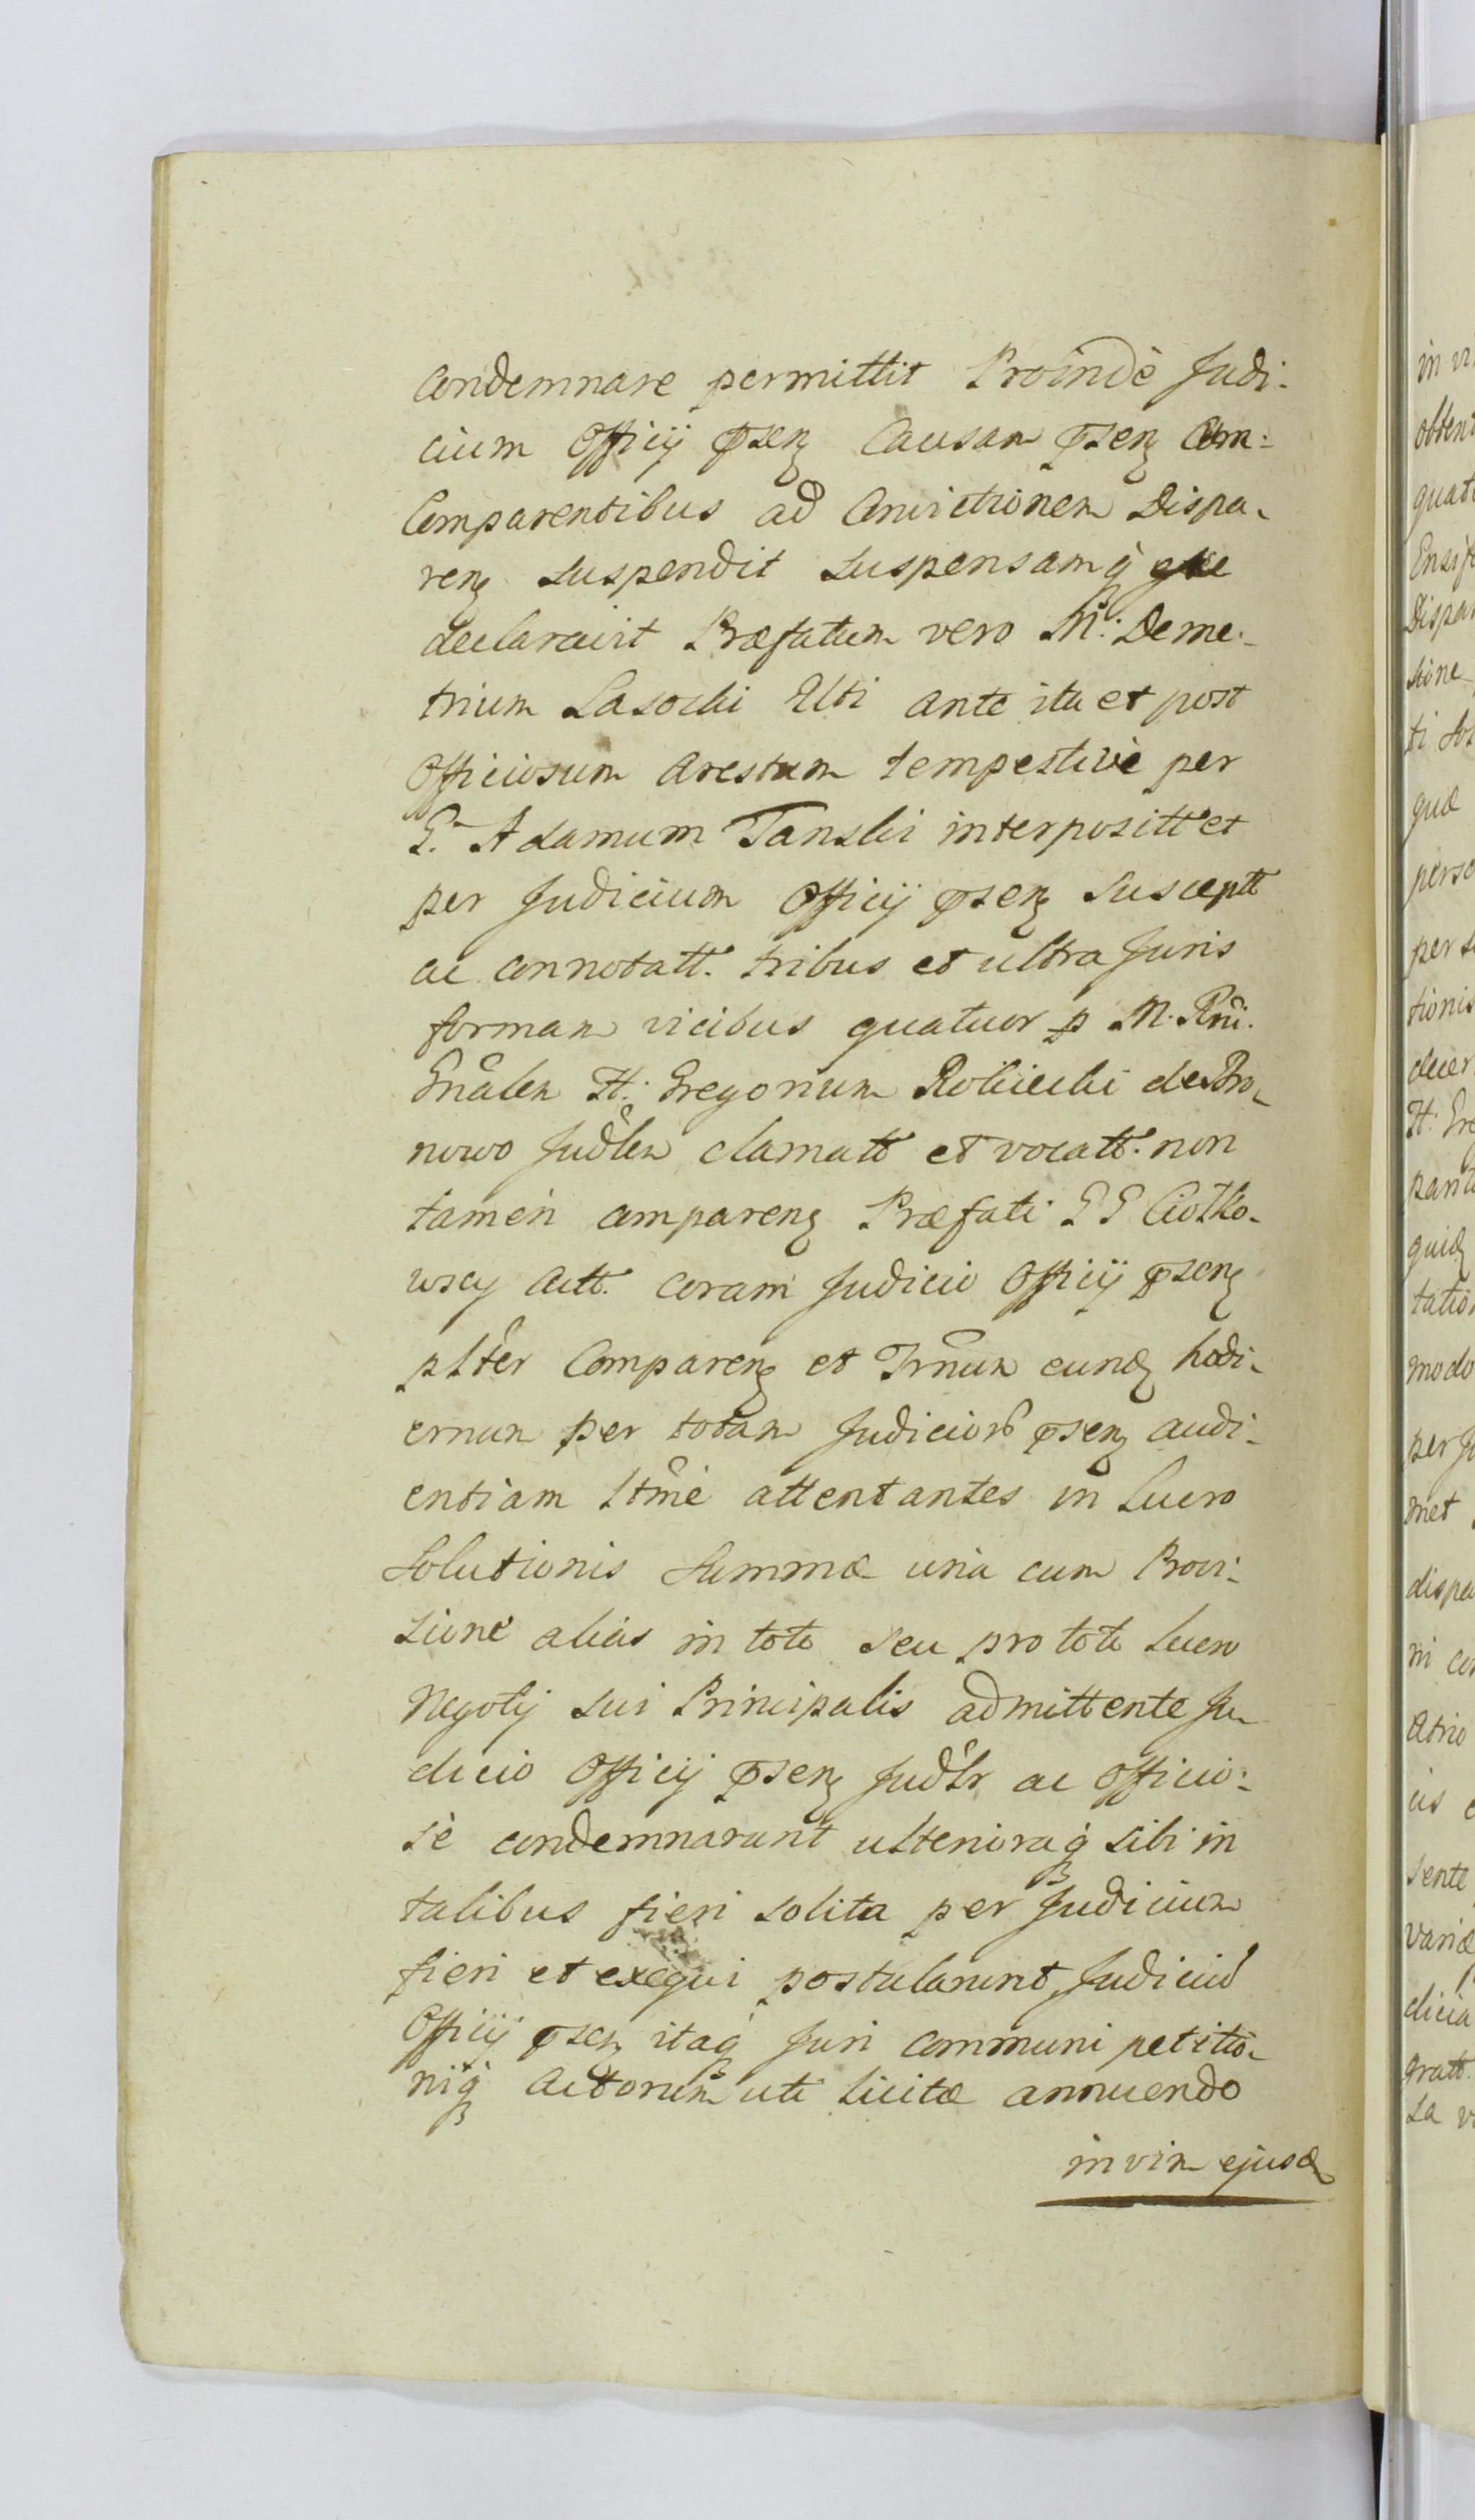 condemnare permittit Proindè Judi-
cium Officij pñsenz Causam pñsenz Com-
Comparentibus ad Convictionem Dispa-
renz suspendit suspensamq̀ esse
declaravit Præfatum vero M: Deme-
trium Lasocki ante ita et post
Officiosum arestum tempestivè per
G. Adamum Tanski interpositt et
per Judicium Officij pñsenz susceptt
ac connotatt. tribus et ultra Juris
formam vicibus quatuor p M. Rñi.
Gñalem H: Gregorium Robiecki de Bro-
nowo Judlem clamatt et vocatt. non
tamen comparenz Præfati G G Ciołko-
wscy Actt. coram Judicio Officij pñsenz
plter Comparenz et Trñum eundz hodi-
ernum per totam Judicior pñsenz audi-
entiam ltmè attentantes in Lucro
Solutionis Summæ unà cum Provi-
sionè alias in toto seu pro toto Lucro
Negotij sui Principalis admittente Ju-
dicio Officij pñsenz Judlr ac officio-
sè condemnarunt ulterioraq̀ sibi in
talibus fieri solita per Judicium
fieri et exequi postularunt, Judiciū
Officij pñsenz itaq̀ Juri communi petitio-
niq̀ Actorum uti licitæ annuendo
in vim ejusd

in vi
obteni
quat
Dispa
sione
quæ
perso
per s
tionis
H: Gre
quidz
tatio
modo
per Ju
met
dispa
sente
variæ
dicia
gratt.